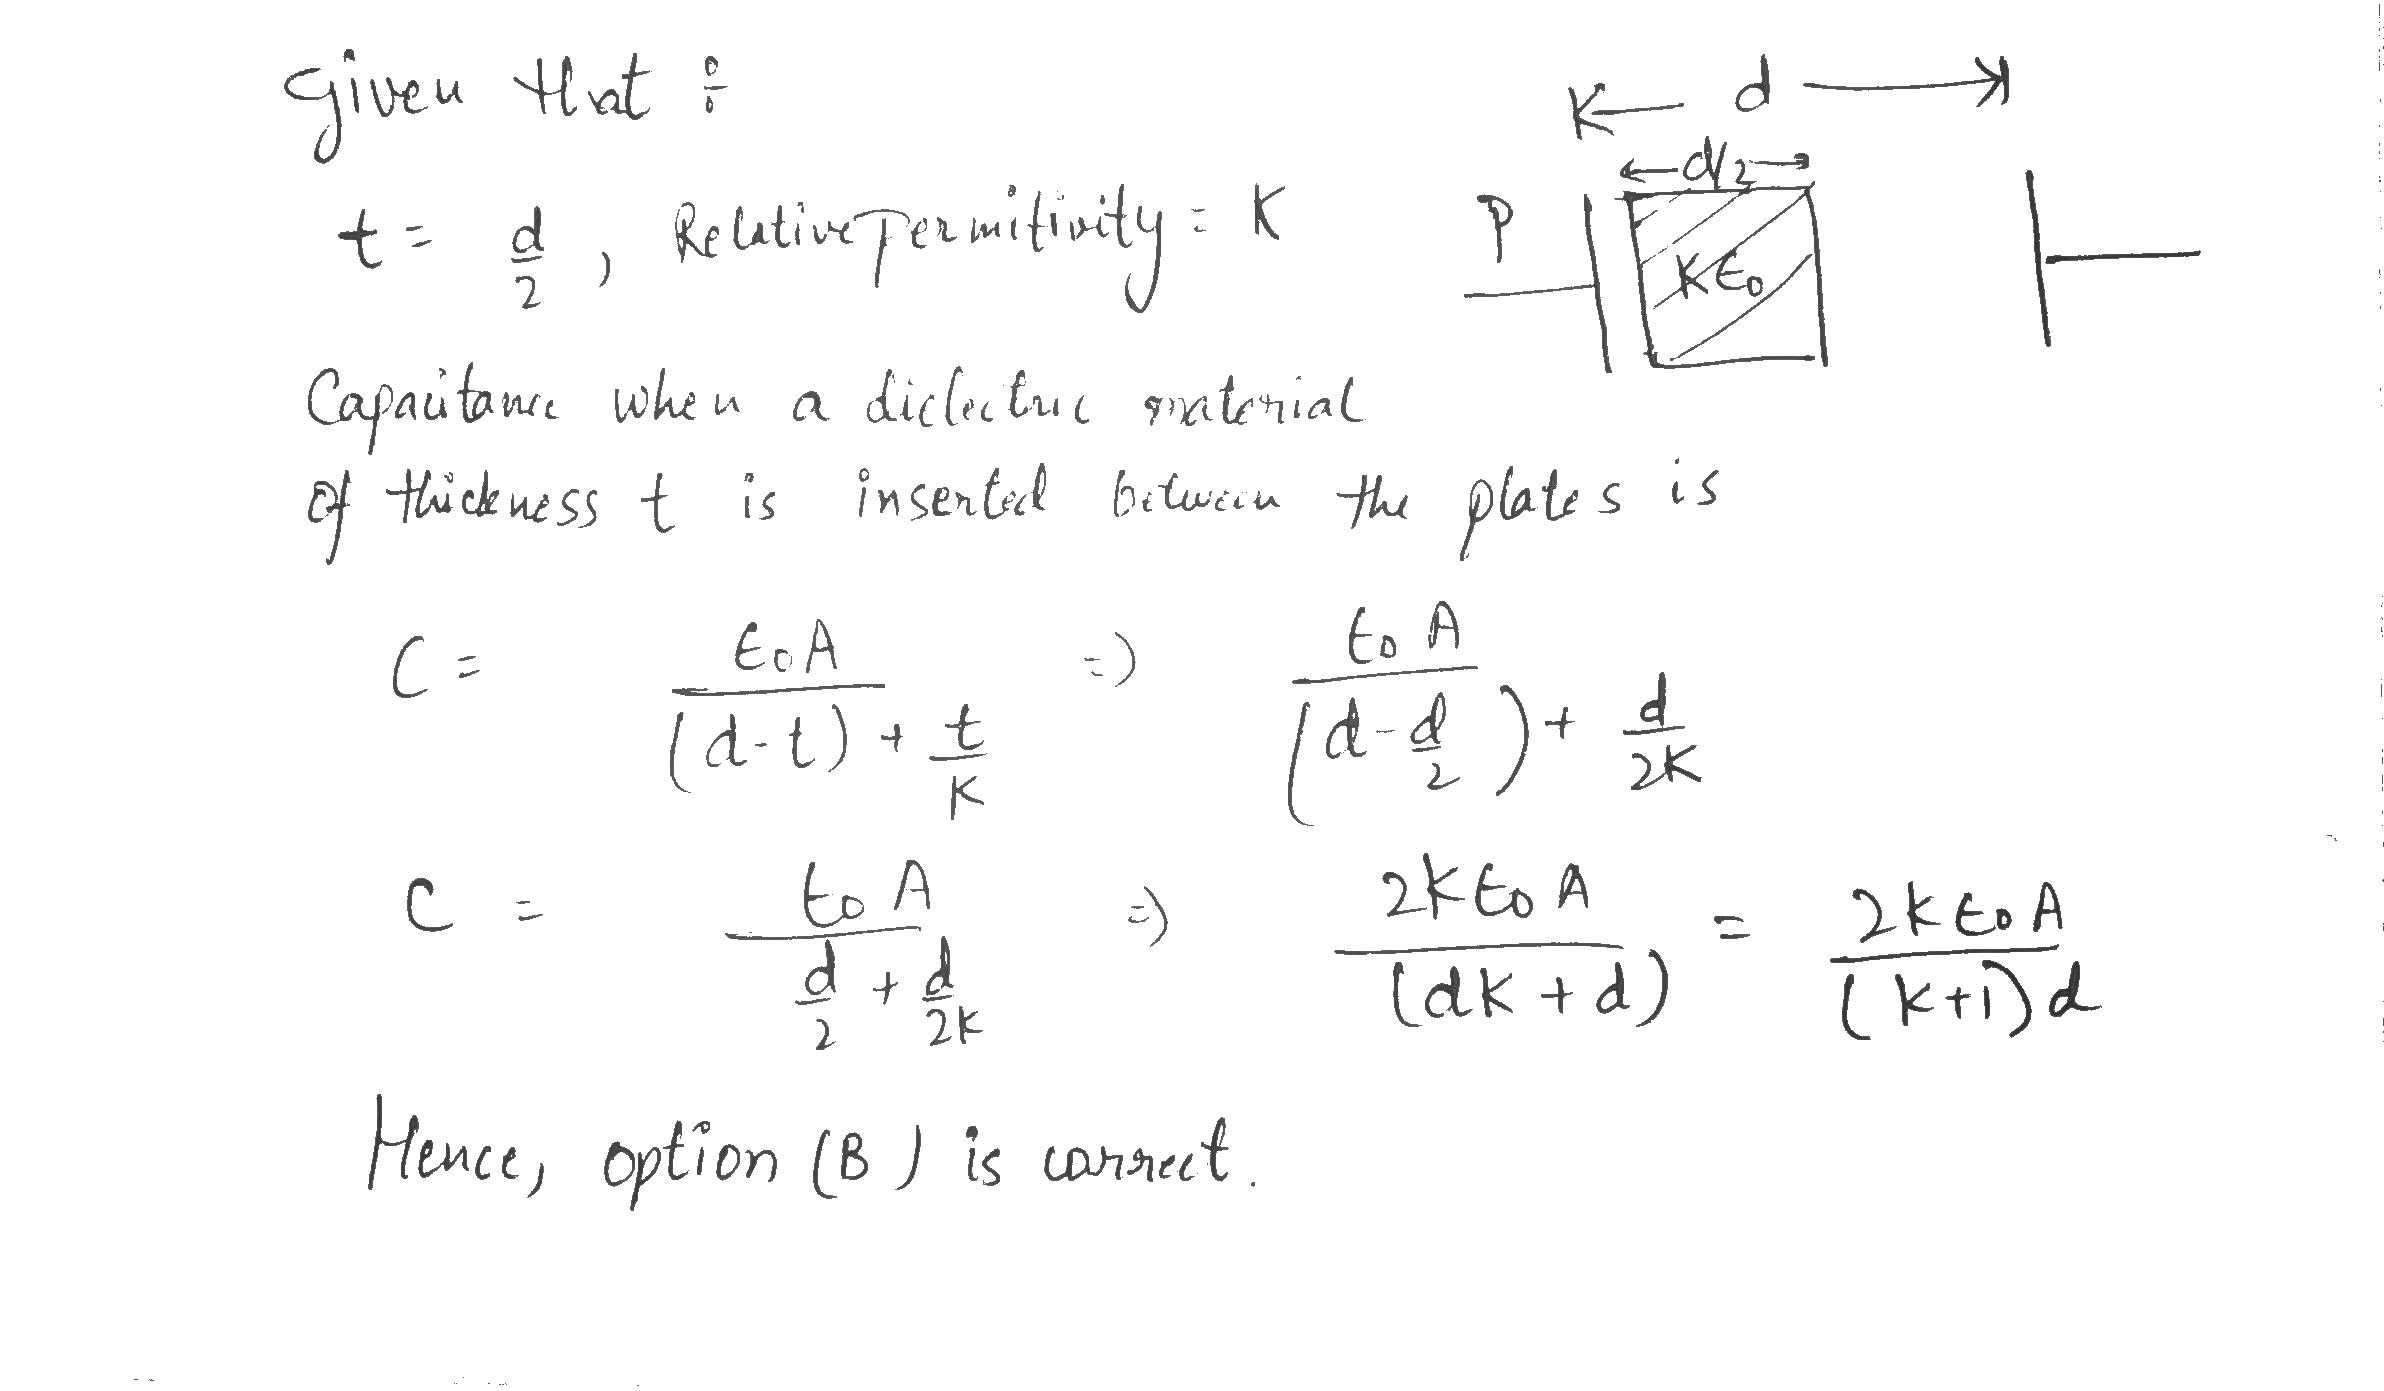 Given that :
d
d/2
t = d/2 , Relative Permitivity = K
P
K ϵ0
Capacitance when a dielectric material
of thickness t is inserted between the plates is
C = ϵ0 A / ((d-t) + t/K) => ϵ0 A / ((d - d/2) + d/2K)
C = ϵ0 A / (d/2 + d/2K) => 2K ϵ0 A / (dK + d) = 2K ϵ0 A / (K+1)d
Hence, option (B) is correct.